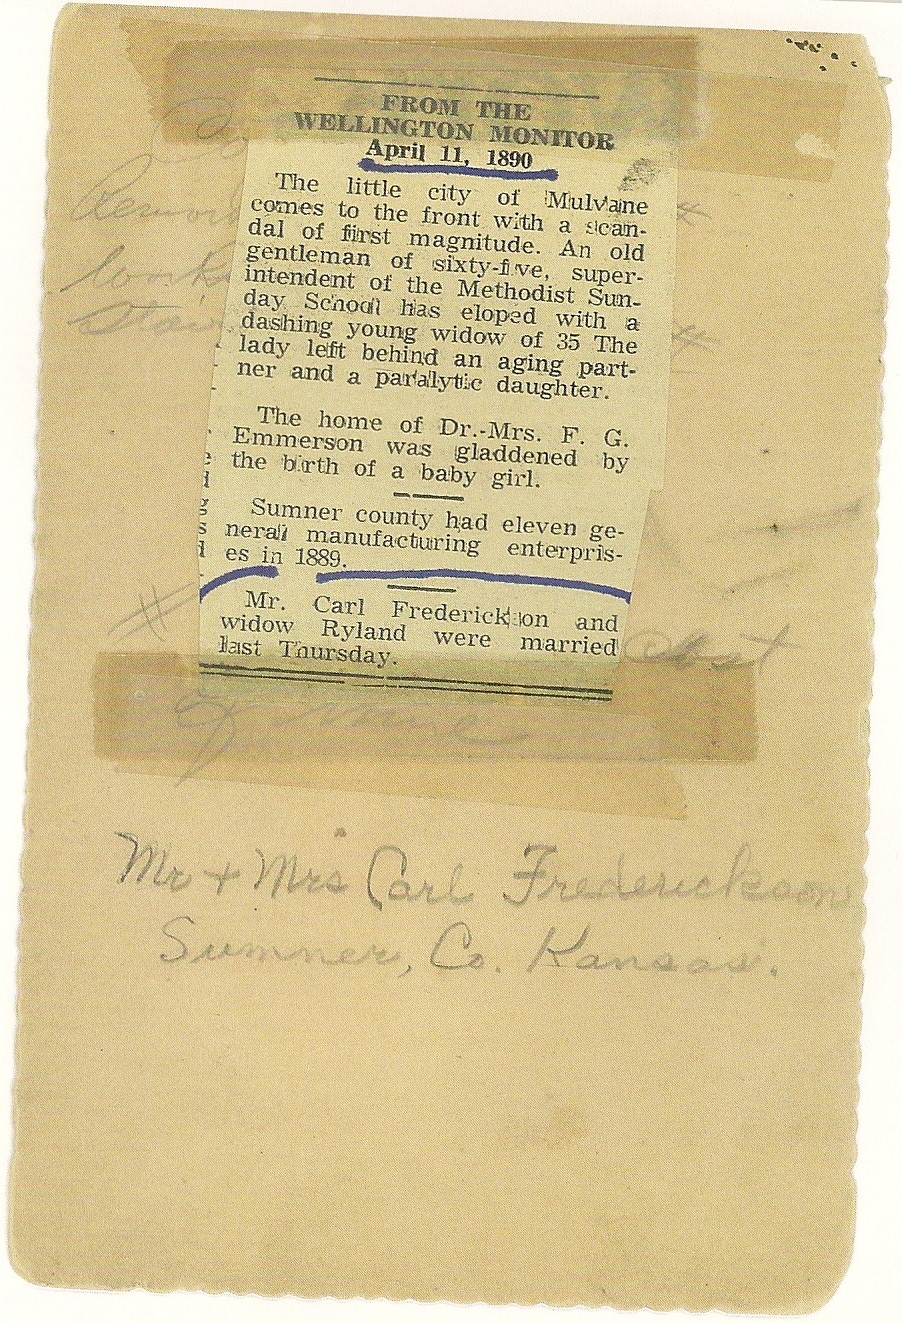 FROM THE
WELLINGTON MONITOR
April 11, 1890
The little city of Mulvane
comes to the front with a scan-
dal of first magnitude. An old
gentleman of sixty-five, super-
intendent of the Methodist Sun-
day School has eloped with a
dashing young widow of 35 The
lady left behind an aging part-
ner and a paralytic daughter.
The home of Dr.-Mrs. F. G.
Emmerson was gladdened by
the birth of a baby girl.
Sumner county had eleven ge-
neral manufacturing enterpris-
es in 1889.
Mr. Carl Frederickson and
widow Ryland were married
last Thursday.
Mr + Mrs Carl Frederickson
Sumner, Co. Kansas.